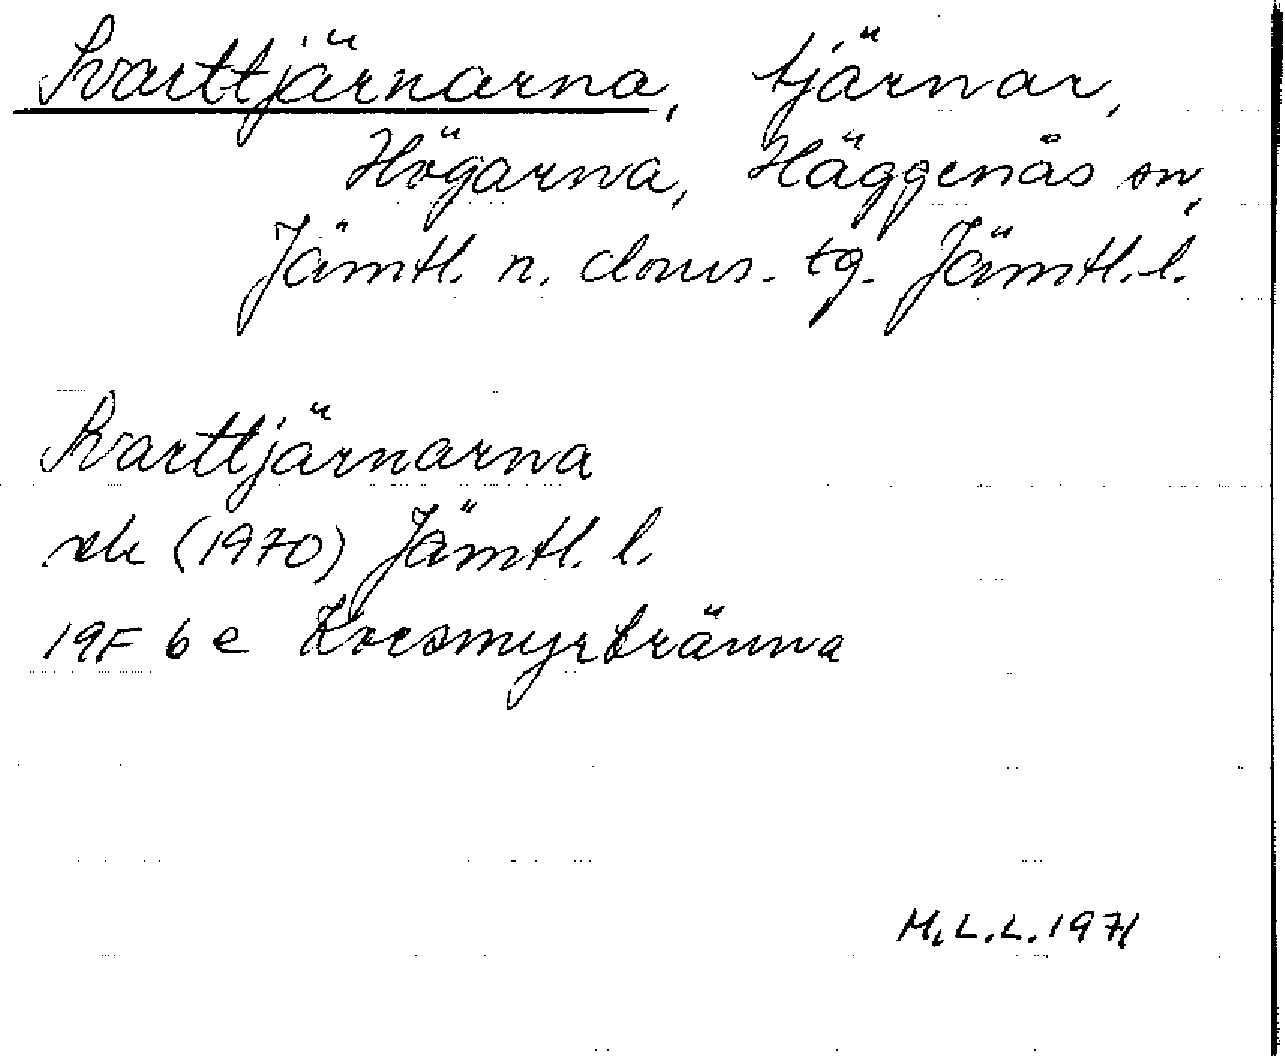 Svarttjärnarna, tjärnar,
Högarna, Häggenås sn,
Jämtl. n. doms. tg. Jämtl. l.
Svarttjärnarna
ek (1970) Jämtl. l.
19F 6e Korsmyrbränna
M.L.L. 1971